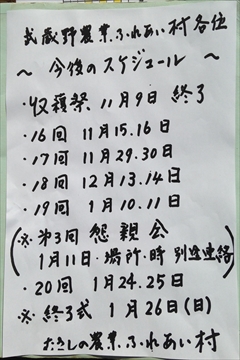 武蔵野農業ふれあい村各位
～今後のスケジュール～
・収穫祭 11月9日 終了
・16回 11月15.16日
・17回 11月29.30日
・18回 12月13.14日
・19回 1月10.11日
(※第3回 懇親会
1月11日・場所・時 別途連絡)
・20回 1月24.25日
※終了式 1月26日(日)
むさしの農業ふれあい村